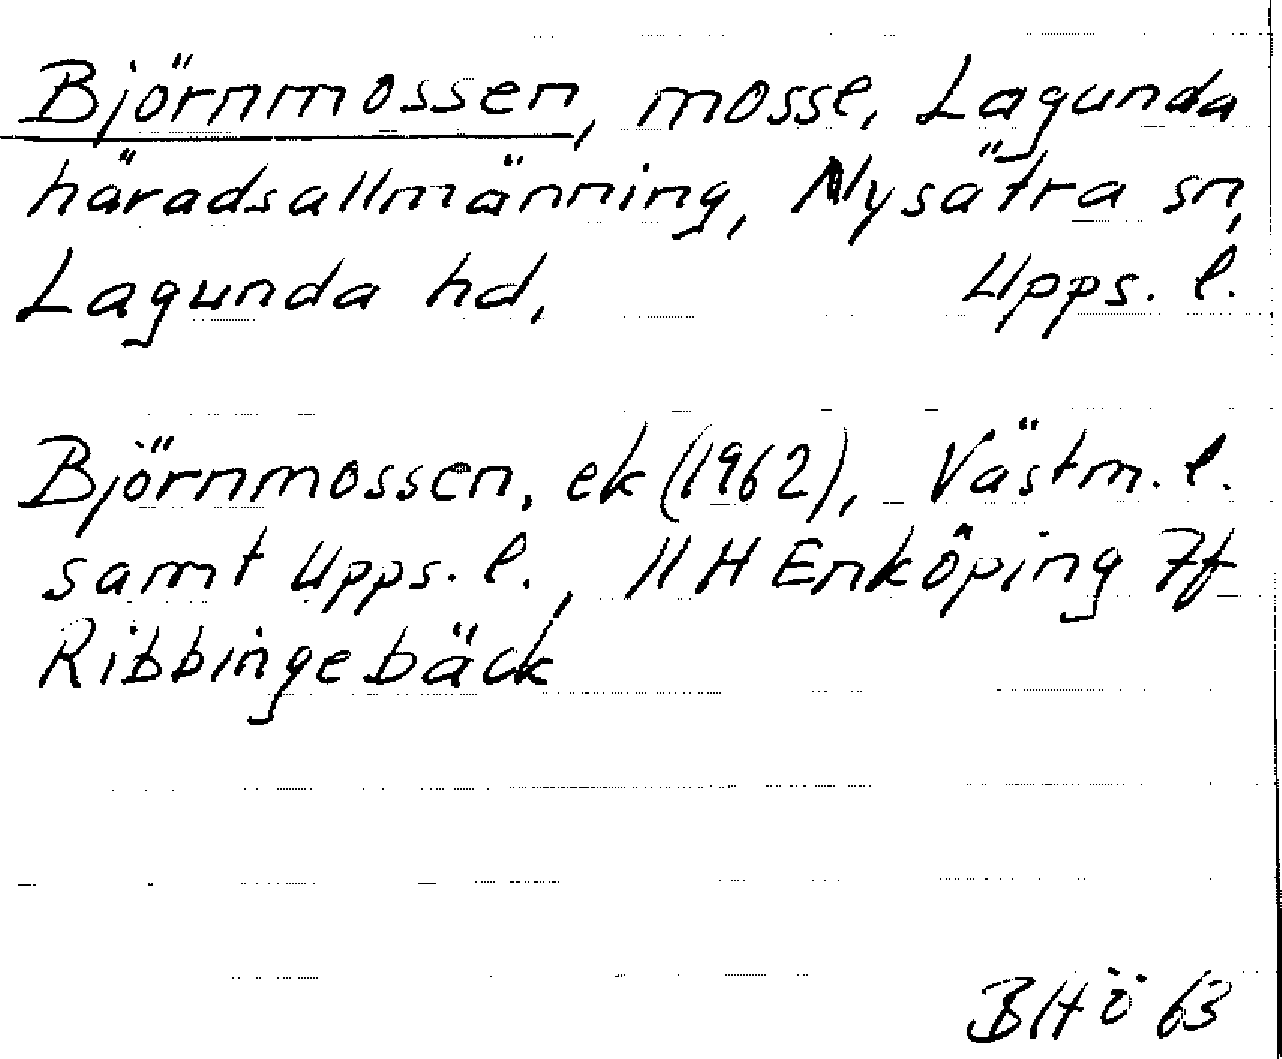 Björnmossen, mosse, Lagunda
häradsallmänning, Nysätra sn,
Lagunda hd, Upps. l.
Björnmossen, ek (1962), Västm. l.
samt Upps. l., 11 H Enköping 7f
Ribbingebäck
BHö 63